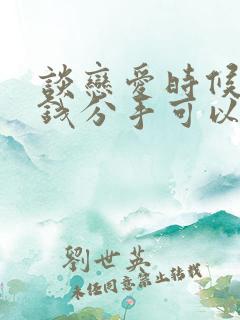 談戀愛時候
錢分手可以
劉世英
未經同意禁止轉載